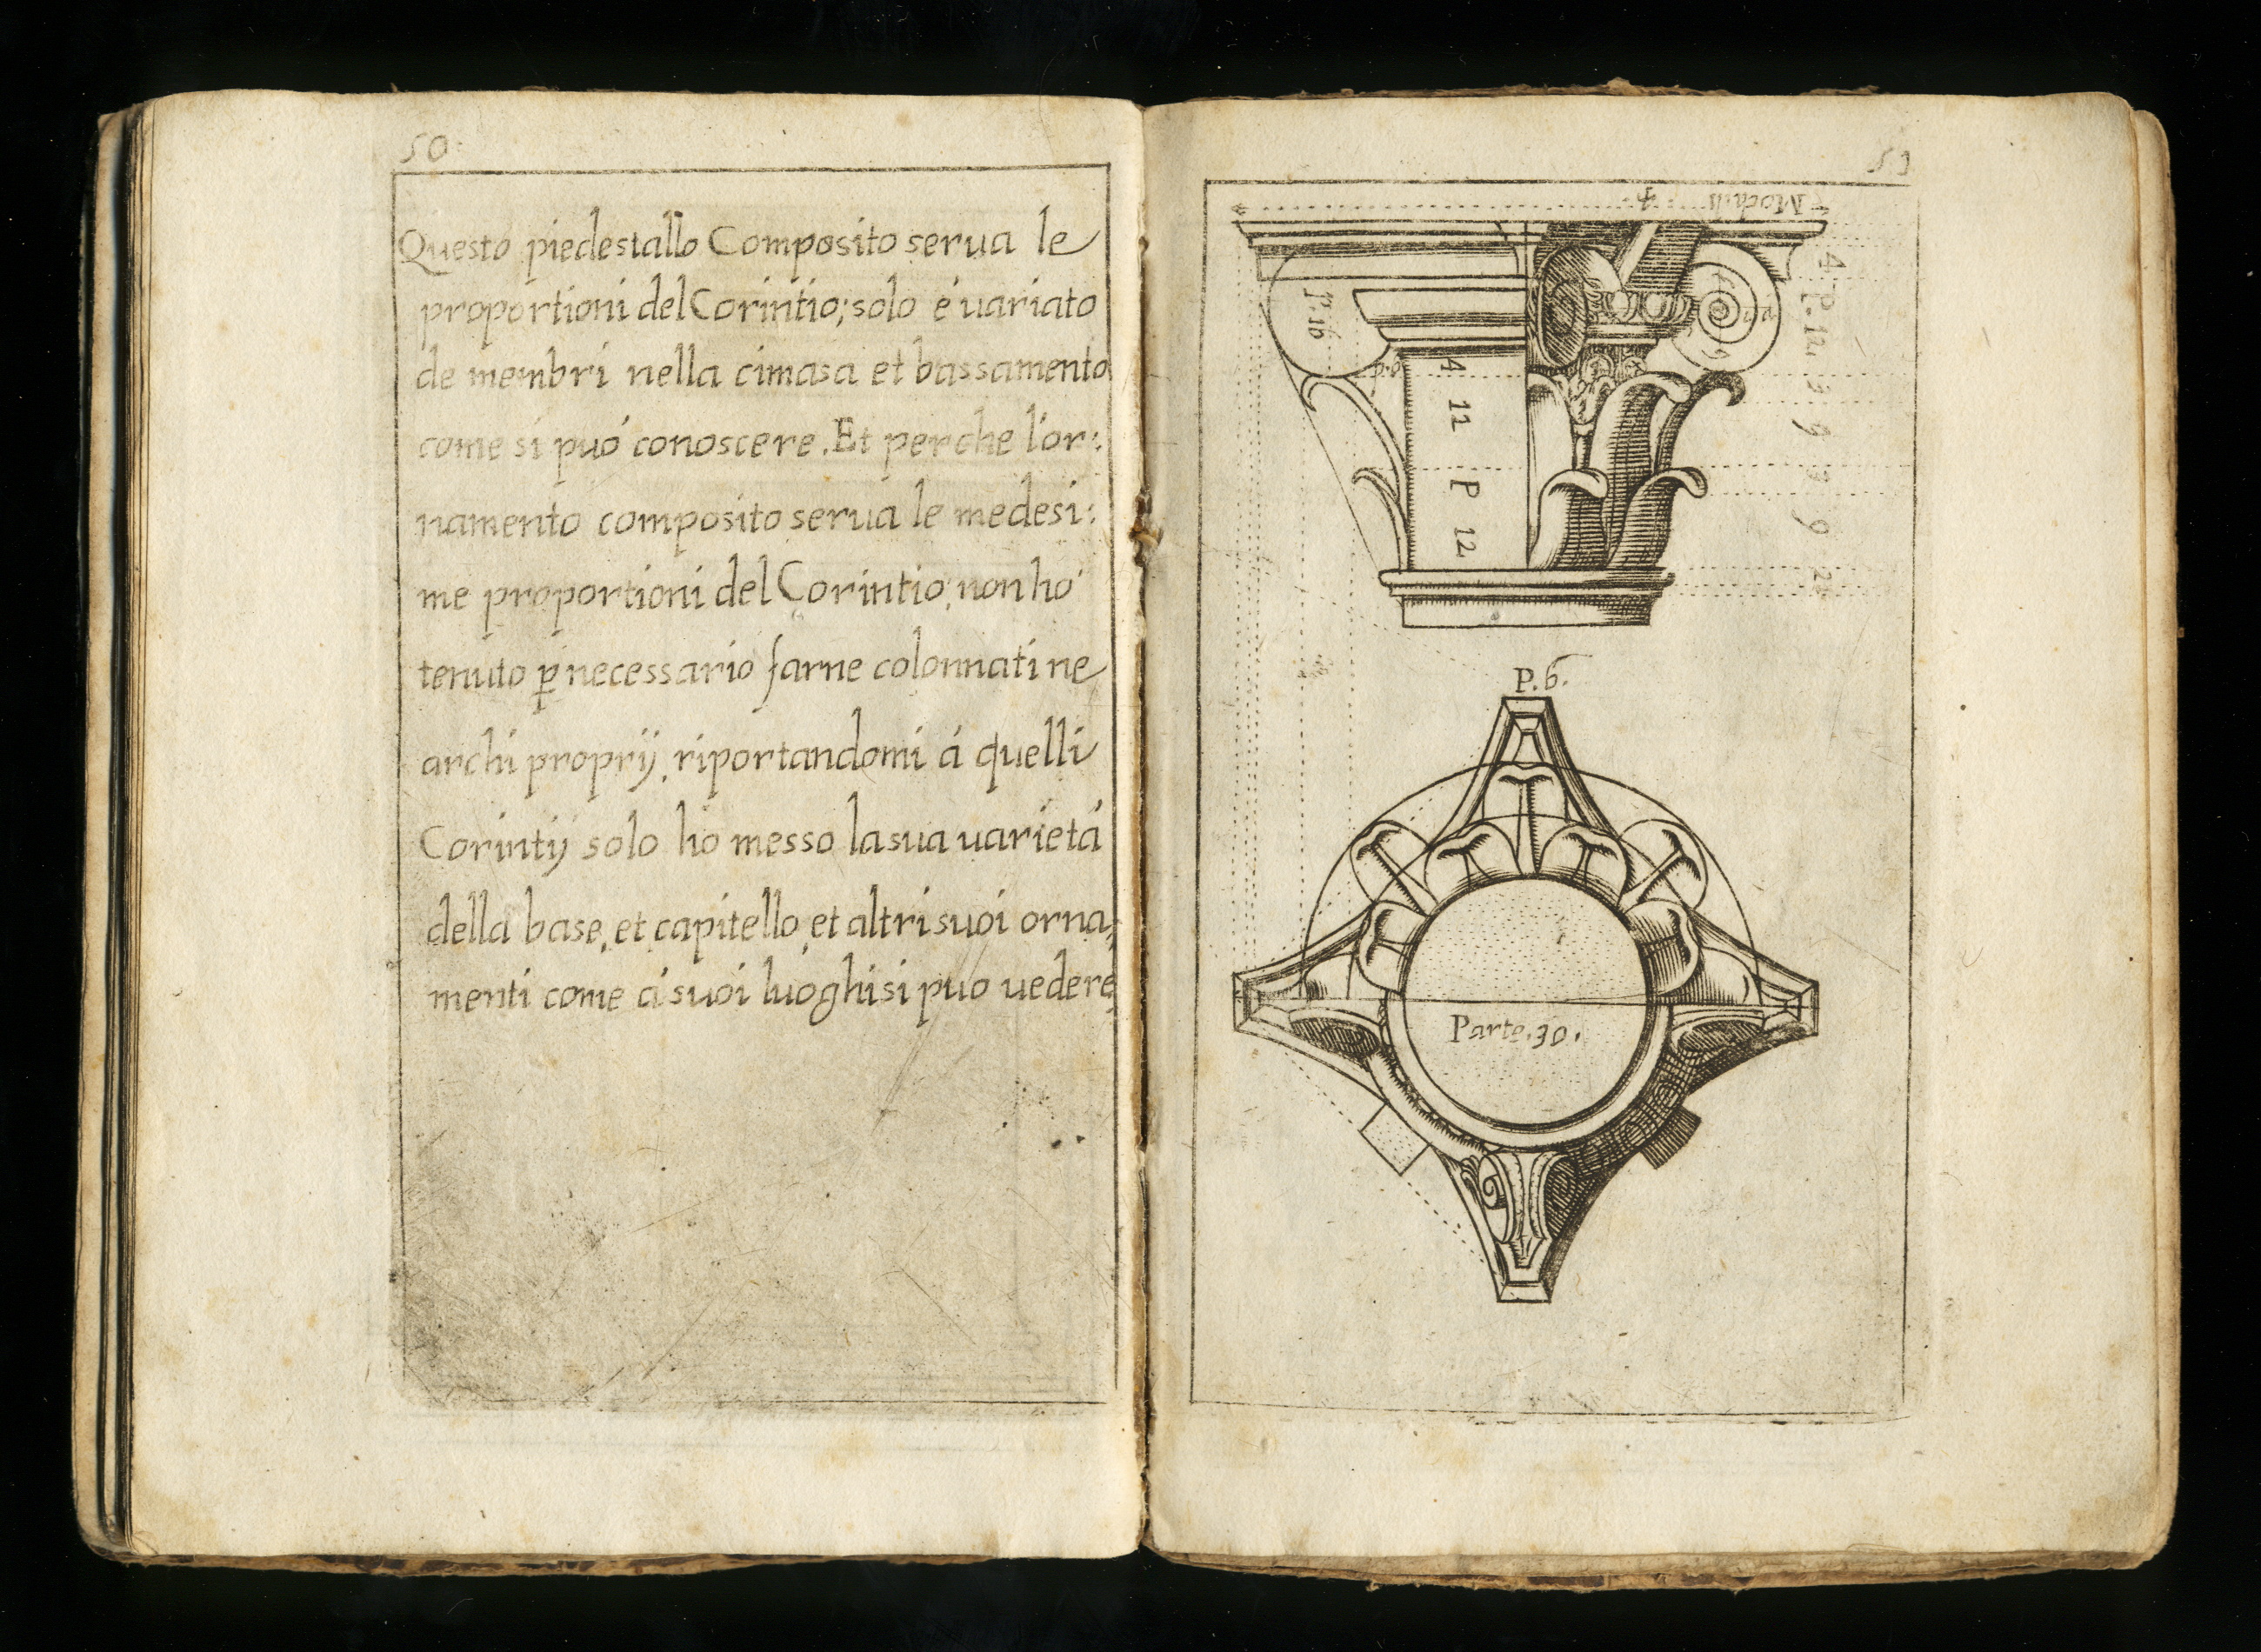 50.
Questo piedestallo Composito serua le
proportioni del Corintio; solo é uariato
de membri nella cimasa et bassamento
come si puó conoscere. Et perche l'or:
namento composito serua le medesi:
me proportioni del Corintio; non hó
tenuto ꝑ necessario farne colonnati ne
archi proprij, riportandomi á quelli
Corintij solo ho messo la sua uarietá
della base, et capitello, et altri suoi orna,
menti come á suoi luoghi si puo uedere,
53
Moduli 4
4 P. 12
3
9
3
9
2
P. 16
P. 6
4 11 P 12
P. 6.
Parte. 30.